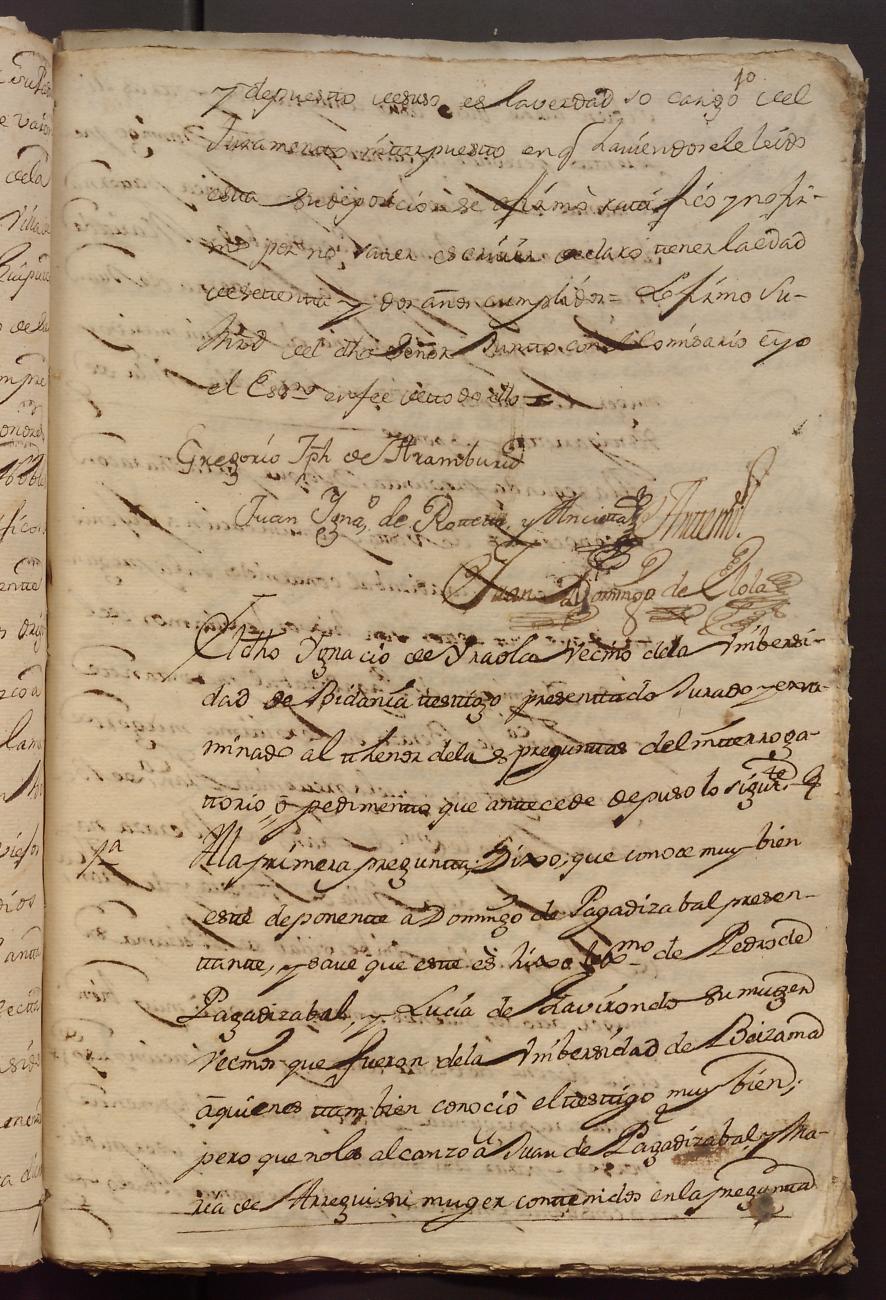 10
y depuesto de suso es la verdad so cargo del
Juramento interpuesto en q haviendosele leido
esta su deposición se afirmó ratificó y no fir-
mó por no saver escrivir declaró tener la edad
de setenta y dos años cumplidos = Lo firmo Su-
Mrd del dho Señor Junto con el Comisario e yo
el Essno en fee de todo ello =
Gregorio Jph de Aramburu
Juan Igno de Rotteta, y Ancieta Antemi
Juan Domingo de Elola
El dho Ignacio de Yraola Vecino de la Vniversi-
dad de Bidania testigo presentado Jurado y exa-
minado al thenor de las preguntas del interroga-
ttorio, o pedimento que antecede depuso lo siguite
1a A la primera pregunta, Dixo, que conoce muy bien
este deponente a Domingo de Pagadizabal presen-
tante, y save que este es hixo lexmo de Pedro de
Pagadizabal, y Lucia de Olavirondo su muger
Vecinos que fueron de la Vniversidad de Beizama
a quienes tambien conoció el testigo muy bien;
pero que no les alcanzó a Juan de Pagadizabal y Ma-
ria de Arregui su muger contenidos en la pregunta